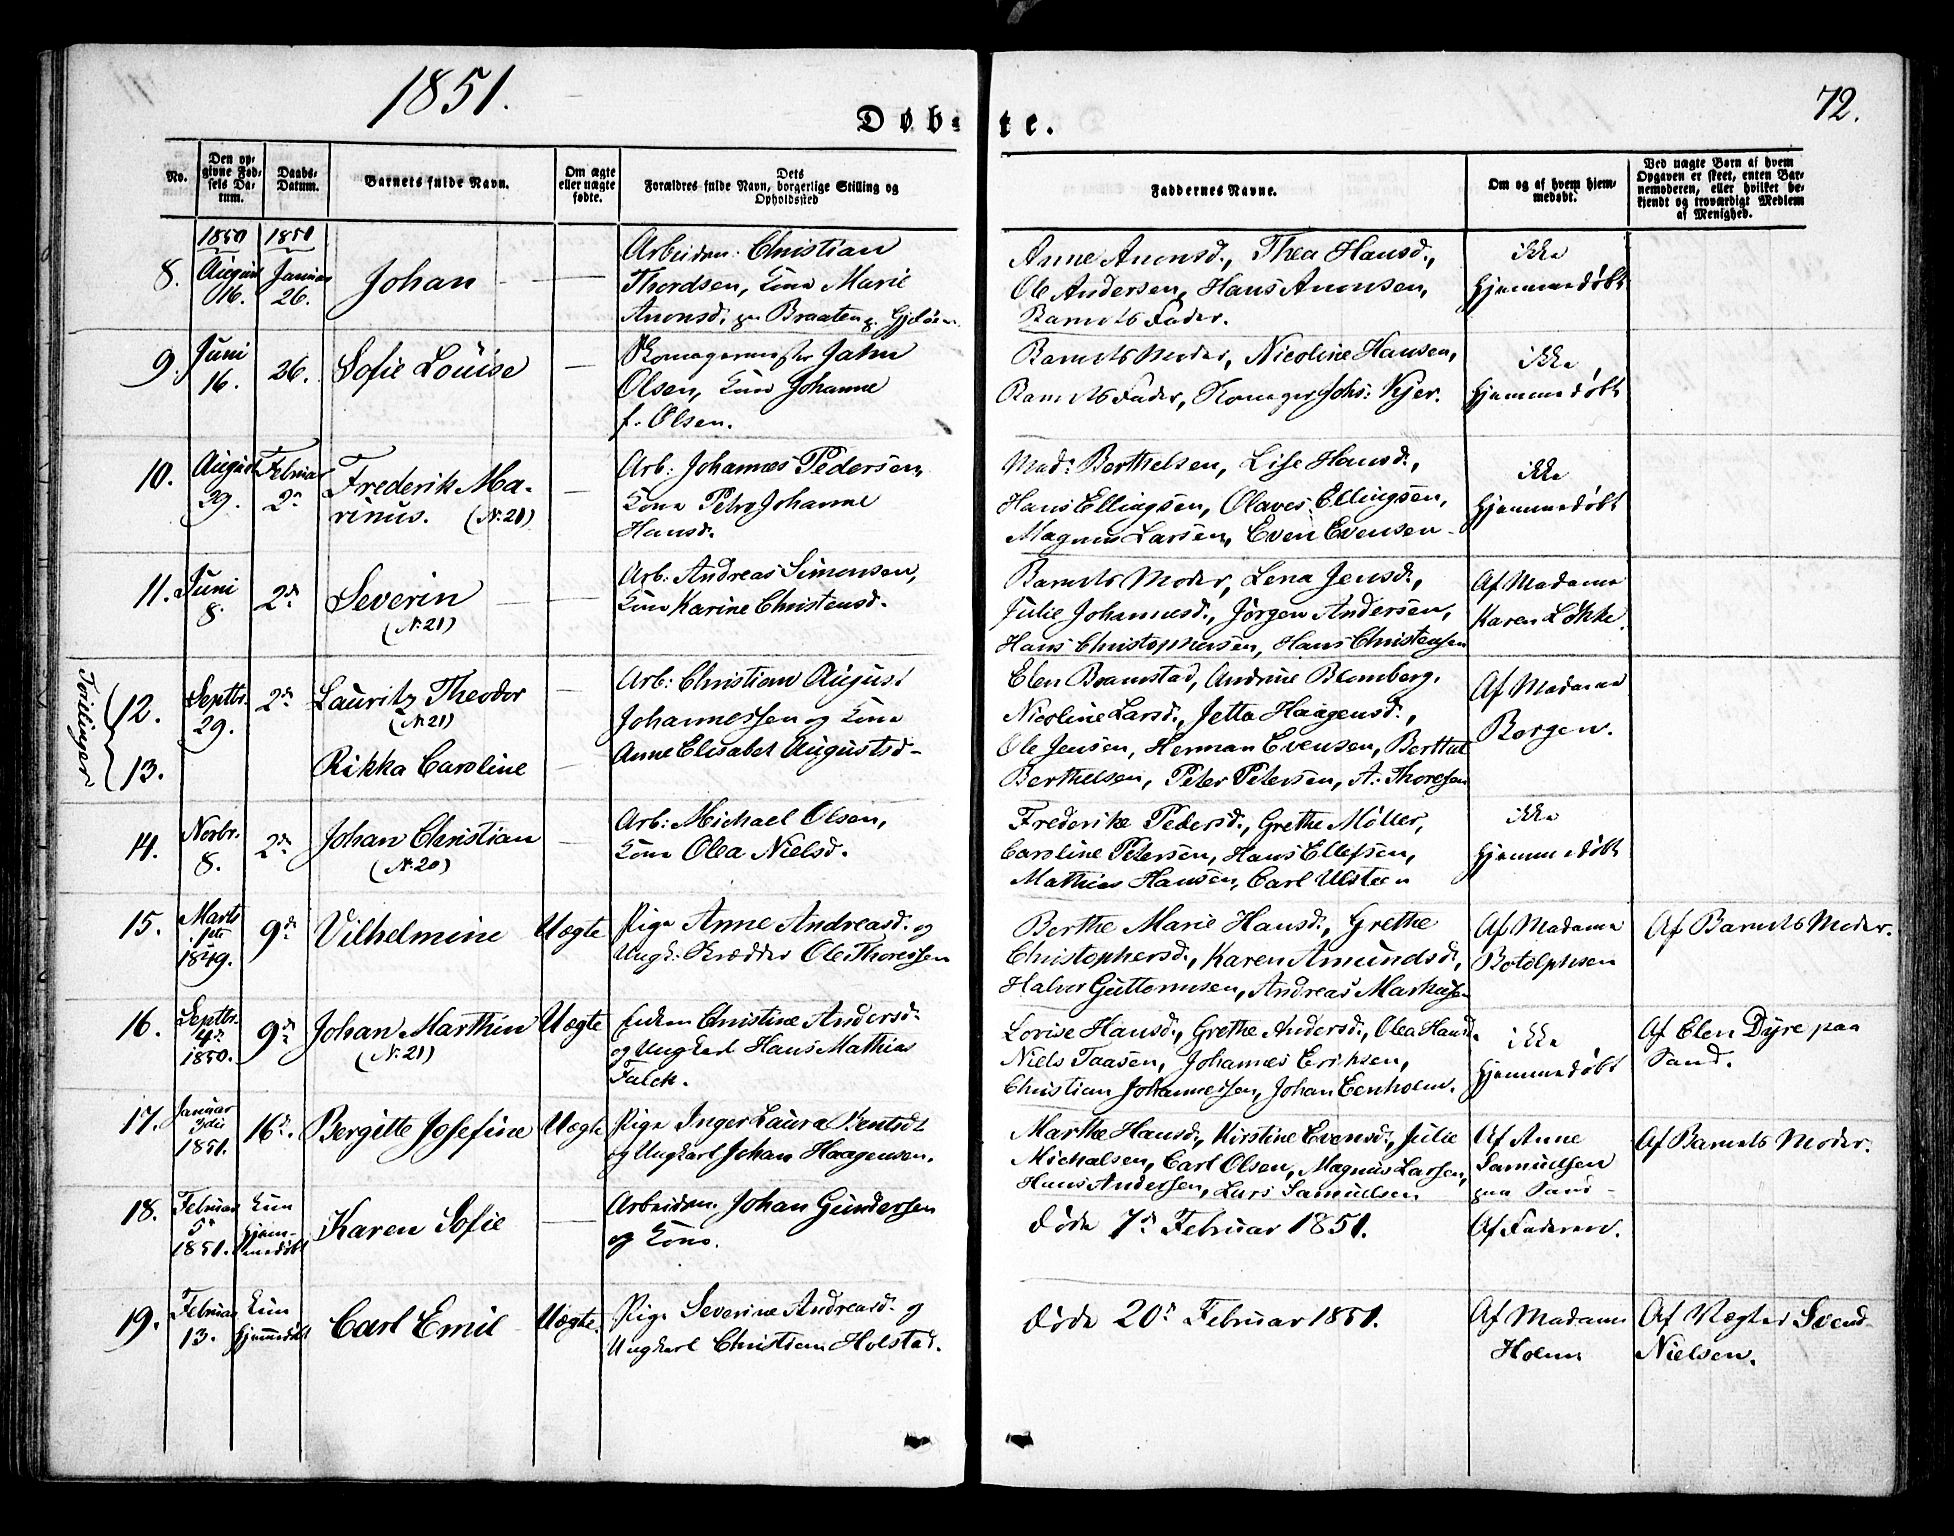 1851.
72.
Døbte.
No.
Den opgivne Fødsels Datum.
Daabs-Datum.
Barnets fulde Navn.
Om ægte eller uægte fødte.
Dets Forældres fulde Navn, borgerlige Stilling og Opholdssted
Faddernes Navne.
Om og af hvem hjemmedøbt.
Ved uægte Børn af hvem Opgaven er skeet, enten Barnemoderen, eller hvilket bekjendt og troværdigt Medlem af Menighed.
1850 1851
8. August 16. Januar 26. Johan
Arbeidsm. Christian
Thordsen, Kone Marie
Anonsd. paa Braaten p. Gjeløen
Anne Anonsd., Thea Hansd.,
Ole Andersen, Hans Anonsen,
Barnets Fader.
ikke
hjemmedøbt
9. Juni 16. 26. Sofie Louise
Skomagermester Jahn
Olsen, Kone Johanne
f. Olsen.
Barnets Moder, Nicoline Hansen,
Barnets Fader, Skomager Johs: Kjer.
ikke
hjemmedøbt
10. August 29. Februar 2den Frederik Ma-
rinus. (N. 21)
Arb: Johannes Pedersen,
Kone Petra Johanne
Hansd.
Mad. Berthelsen, Lise Hansd.,
Hans Ellingsen, Olaves Ellingsen,
Magnus Larsen, Even Evensen
ikke
hjemmedøbt
11. Juni 8. 2den Severin
(N. 21)
Arb: Andreas Simensen,
Kone Karine Christensd.
Barnets Moder, Lena Jensd.,
Julie Johannesd., Jørgen Andersen,
Hans Christophersen, Hans Christensen
Af Madame
Karen Løkke.
Tvillinger
12. Septbr. 29. 2den Lauritz Theodor
(N. 21)
13. Rikka Caroline
Arb: Christian August
Johannessen og Kone
Anne Elisabet Augustsd
Elen Bramstad, Andrine Blomberg,
Nicoline Larsd., Jetta Haagensd.,
Ole Jensen, Herman Evensen, Berthel
Berthelsen, Peter Petersen, A. Thoresen
Af Madame
Borgen.
14. Novbr. 8. 2den Johan Christian
(N. 20)
Arb: Michael Olsen,
Kone Olea Nielsd.
Frederike Pedersd., Grethe Møller,
Caroline Petersen, Hans Ellefsen,
Mathias Hansen, Carl Ulsteen
ikke
hjemmedøbt
15. Marts 1ste 1849. 9de Vilhelmine Uægte
Pige Anne Andreasd. og
Ungk: Skrædder Ole Thoressen
Berthe Marie Hansd., Grethe
Christophersd., Karen Amundsd.,
Halvor Guttormsen, Andreas Markusen
Af Madame
Botolphsen
Af Barnets Moder.
16. Septbr. 4de 1850. 9de Johan Marthin Uægte
(N. 21)
Enken Christine Andersd.
og Ungkarl Hans Mathias
Falck.
Lovise Hansd., Grethe Andersd., Olea Hansd.
Niels Taasen, Johannes Eriksen,
Christian Johannessen, Johan Eenholm.
ikke
hjemmedøbt
Af Elen Dyre paa
Sand.
17. Januar 3die 1851. 16de. Bergitte Josefine Uægte
Pige Inger Laura Bentsd.
og Ungkarl Johan Haagensen.
Marthe Hansd., Kirstine Evensd., Julie
Michalsen, Carl Olsen, Magnus Larsen,
Hans Andersen, Lars Samuelsen
Af Anne
Samuelsen
paa Sand
Af Barnets Moder.
18. Februar 5te 1851. Kun hjemmedøbt Karen Sofie
Arbeidsm. Johan Gundersen
og Kone.
Døde 7de Februar 1851.
Af Faderen.
19. Februar 13. Kun hjemmedøbt Carl Emil Uægte.
Pige Severine Andreasd. og
Ungkarl Christian Holstad.
Døde 20de Februar 1851.
Af Madame
Holm
Af Vægter Svend
Nielsen.